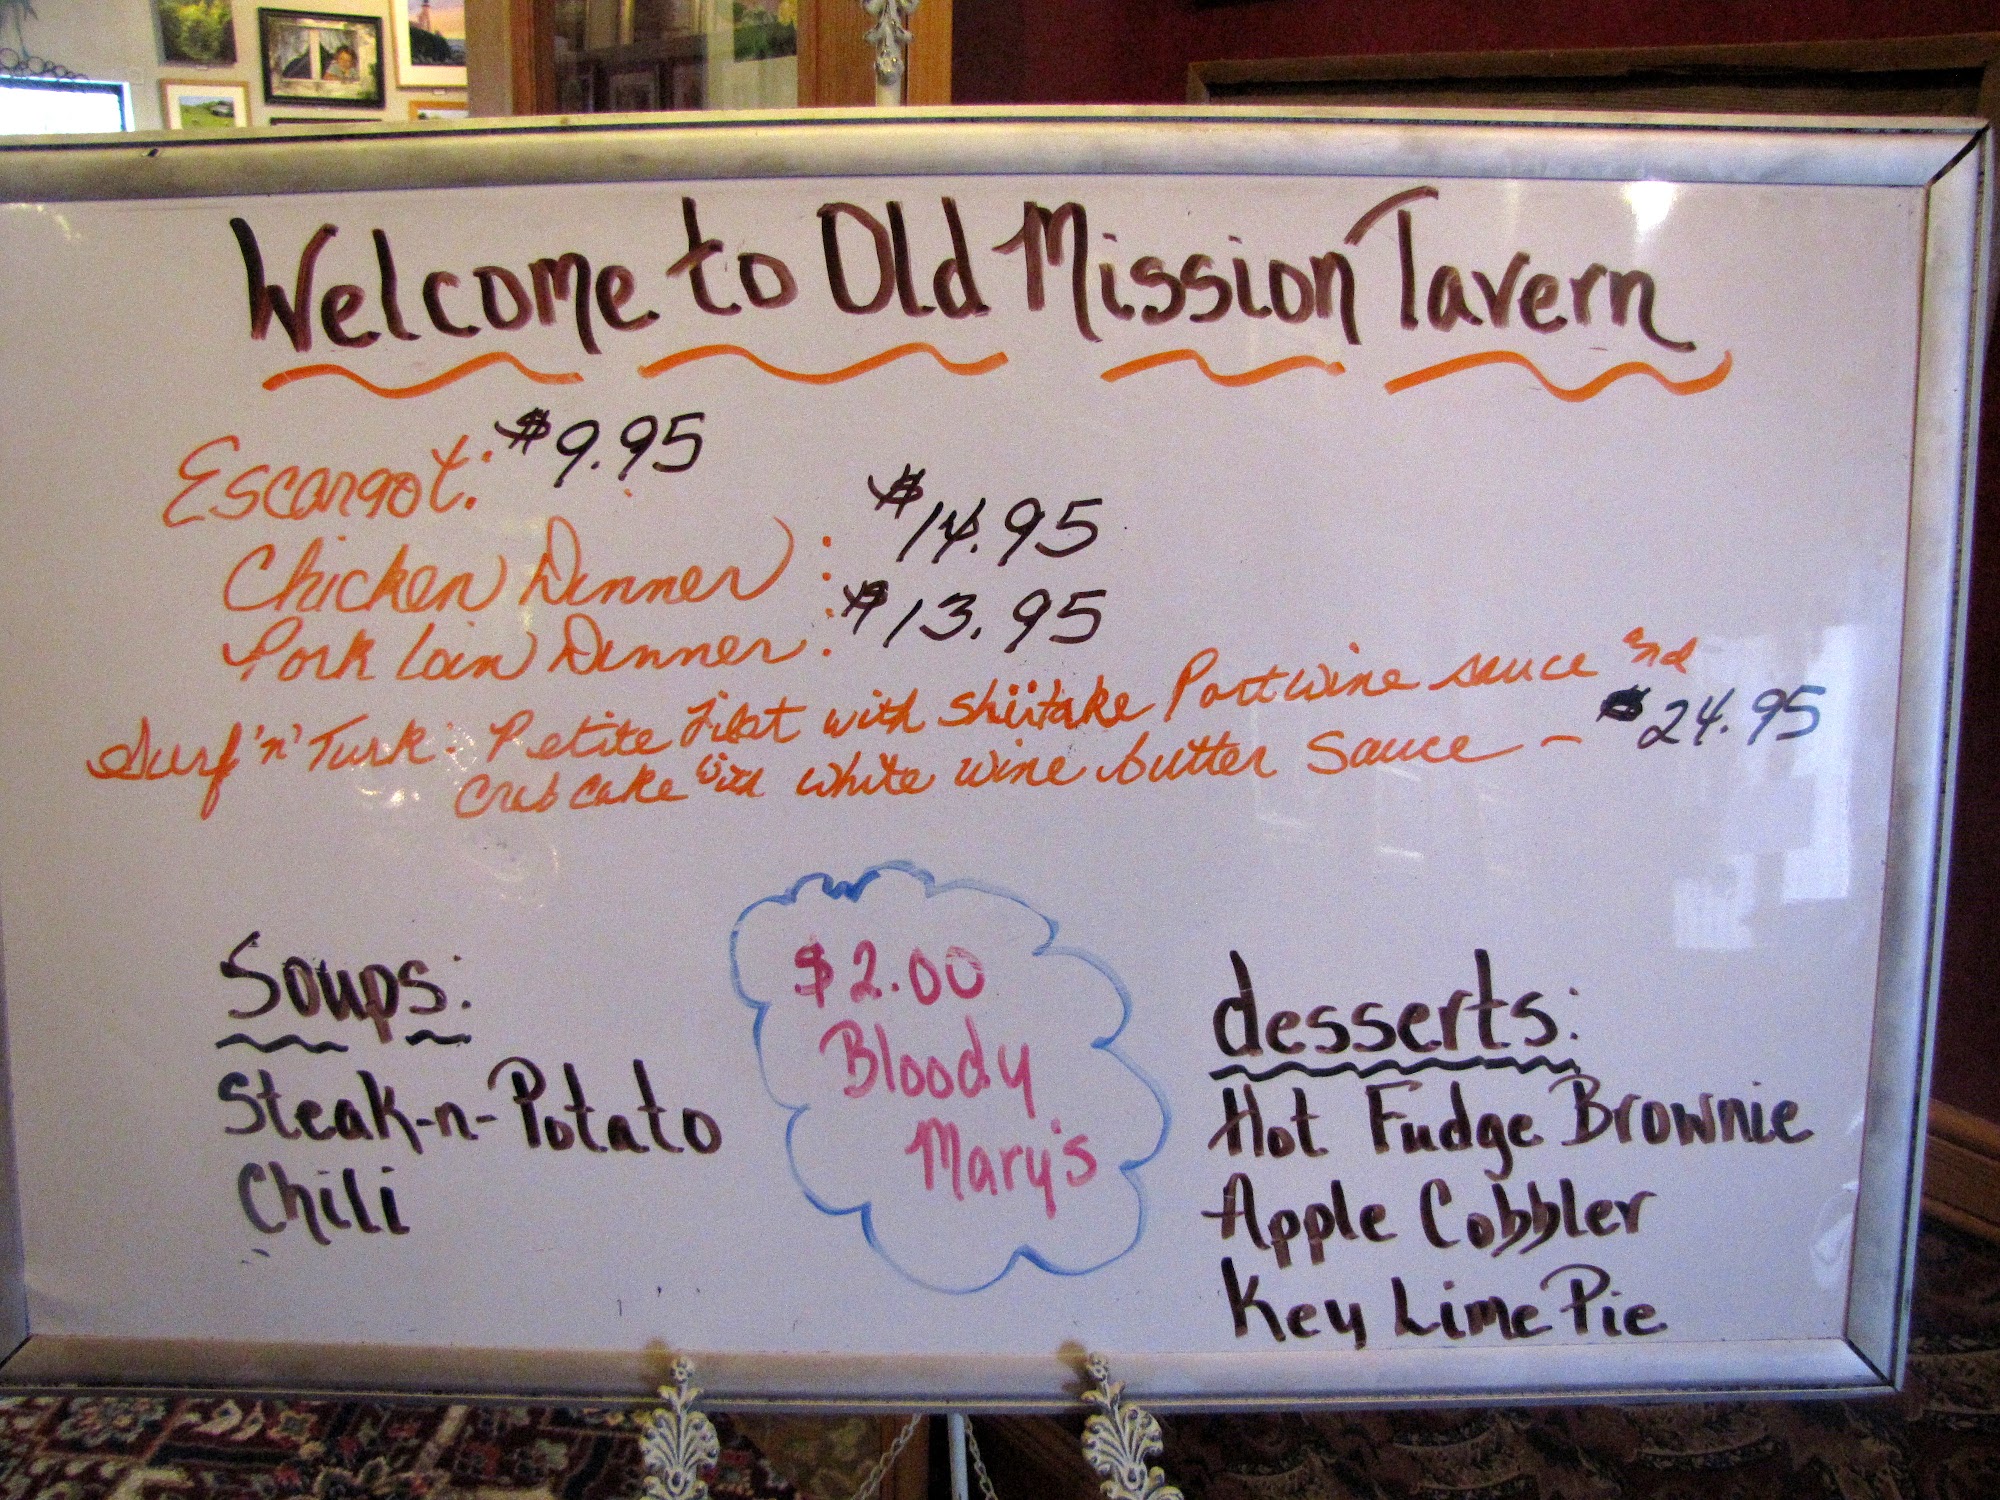 Welcome to Old Mission Tavern
Escargot: $9.95
Chicken Dinner: $14.95
Pork Loin Dinner: $13.95
Surf 'n' Turk: Petite filet with shiitake Portwine sauce and
crab cake with white wine butter sauce - $24.95
Soups:
Steak-n-Potato
Chili
$2.00
Bloody
Mary's
desserts:
Hot Fudge Brownie
Apple Cobbler
Key Lime Pie